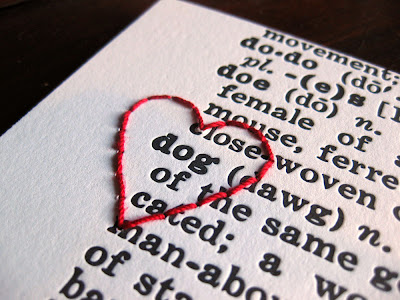 movement;
do·do (dō′
pl. -(e)s [
doe (dō) n.
female of a
mouse, ferre
close-woven c
dog (dawg) n.
of the same g
cated; a wo
man-abo
of sta
ba